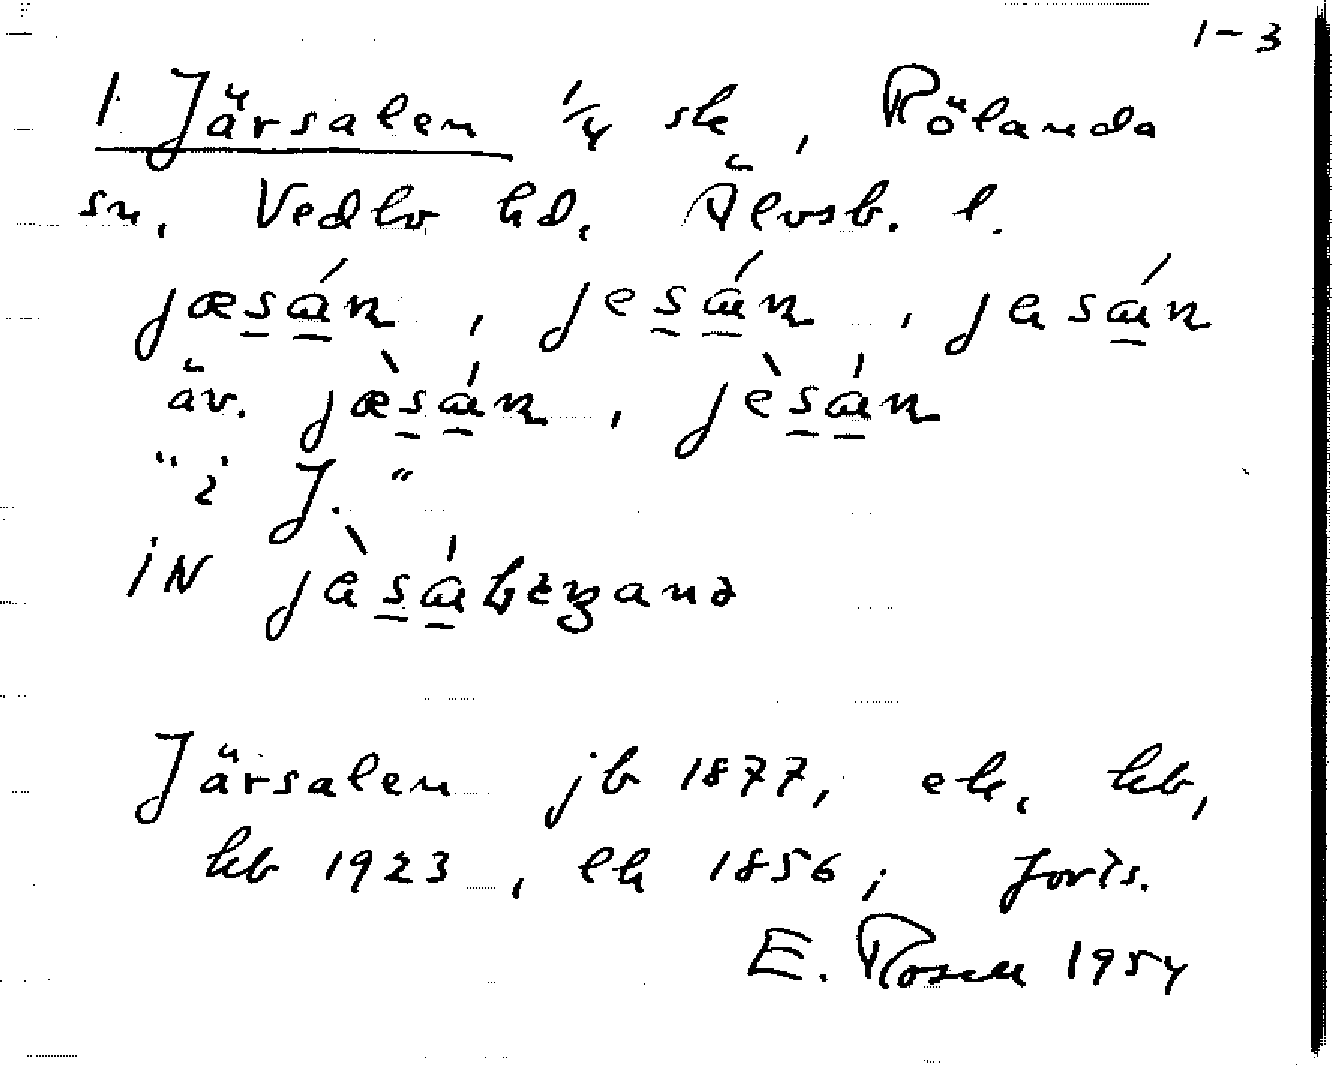 1-3
1 Järsalen 1/4 sk, Rölanda
sn, Vedbo hd, Älvsb. l.
jæsán, jesán, jasán
äv. jæ̀sán, jèsán
"i J."
IN
Järsalen jb 1877, ek, kb,
kb 1923, lh 1856; forts.
E. Rosell 1954